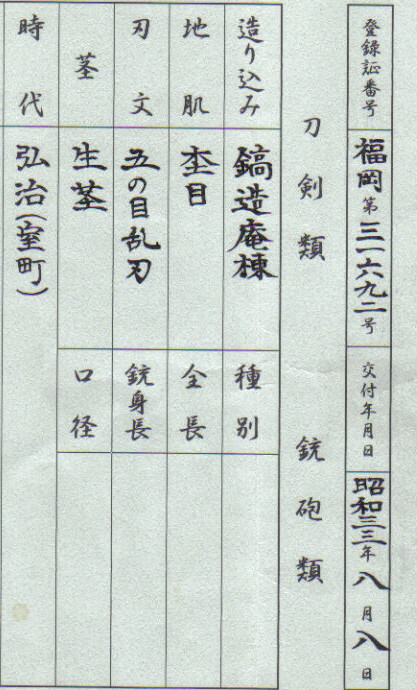 登録証番号 福岡第三一六九二号 交付年月日 昭和三三年八月八日
刀剣類 銃砲類
造り込み 鎬造庵棟 種別
地肌 杢目 全長
刃文 五の目乱刃 銃身長
茎 生茎 口径
時代 弘治(室町)